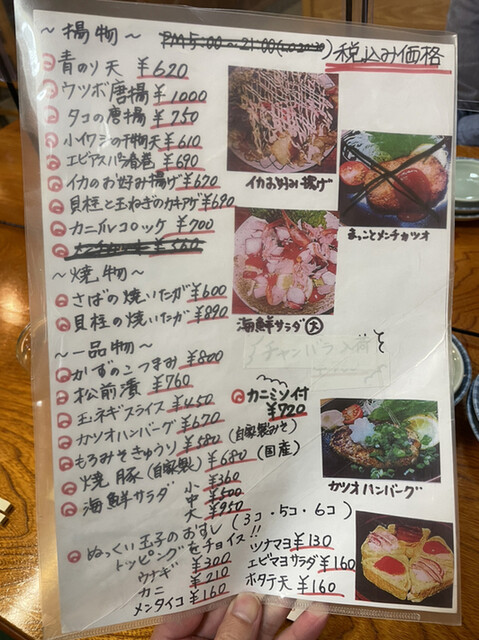 〜揚物〜
PM5:00〜21:00
税込み価格
青のり天 ¥620
ウツボ唐揚 ¥1000
タコの唐揚 ¥750
小イワシの干物天 ¥610
エビアスパラ春巻 ¥690
イカのお好み揚げ ¥620
貝柱と玉ねぎのカキアゲ ¥690
カニクリームコロッケ ¥700
¥560
イカお好み揚げ
まっことメンチカツオ
〜焼物〜
さばの焼いたが ¥600
貝柱の焼いたが ¥890
海鮮サラダ 大
〜一品物〜
かずのこつまみ ¥800
松前漬 ¥760
玉ネギスライス ¥450
カツオハンバーグ ¥670
もろみそきゅうり ¥680 (自家製みそ)
焼豚 (自家製) ¥680 (国産)
海鮮サラダ 小 ¥360
中 ¥500
大 ¥950
チャンバラ入荷
カニミソ付
¥720
カツオハンバーグ
ぬっくい玉子のおすし (3コ・5コ・6コ)
トッピングをチョイス!!
ウナギ ¥300
カニ ¥210
メンタイコ ¥160
ツナマヨ ¥130
エビマヨサラダ ¥160
ホタテ天 ¥160